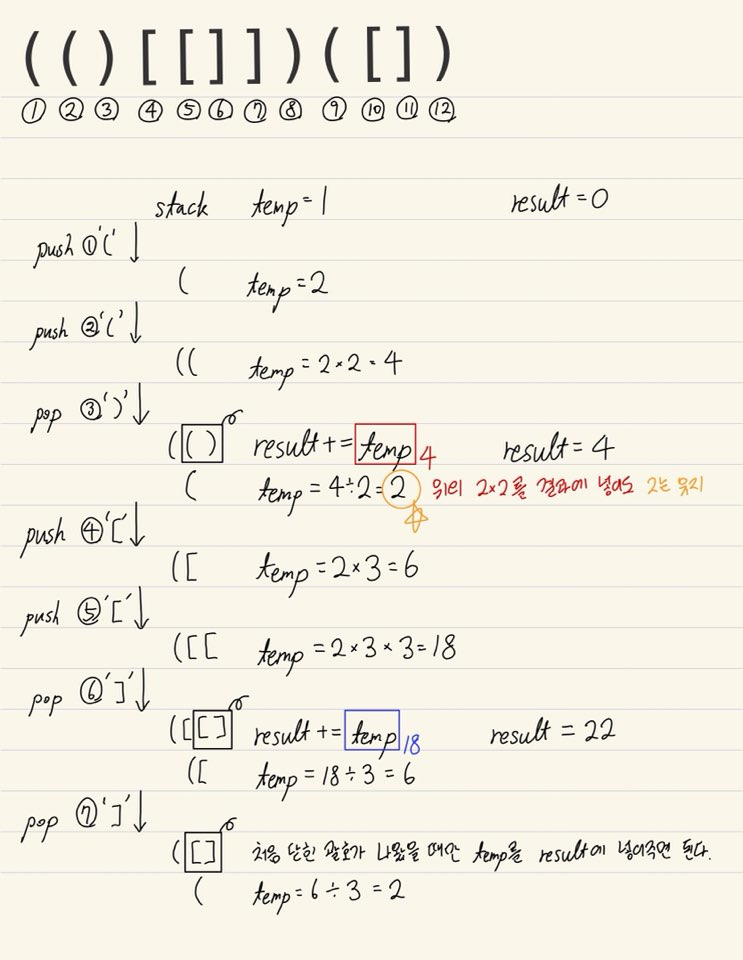 (()[[]])([])
① ② ③ ④ ⑤ ⑥ ⑦ ⑧ ⑨ ⑩ ⑪ ⑫
stack temp=1 result=0
push ①'(' ↓
( temp=2
push ②'(' ↓
(( temp=2×2=4
pop ③')' ↓
(() result+=temp 4 result=4
( temp=4÷2=2 위의 2×2를 결과에 넣어도 2는 유지
push ④'[' ↓
([ temp=2×3=6
push ⑤'[' ↓
([[ temp=2×3×3=18
pop ⑥']' ↓
([[] result+=temp 18 result=22
([ temp=18÷3=6
pop ⑦']' ↓
([] 처음 닫힌 괄호가 나왔을 때만 temp를 result에 넣어주면 된다.
( temp=6÷3=2